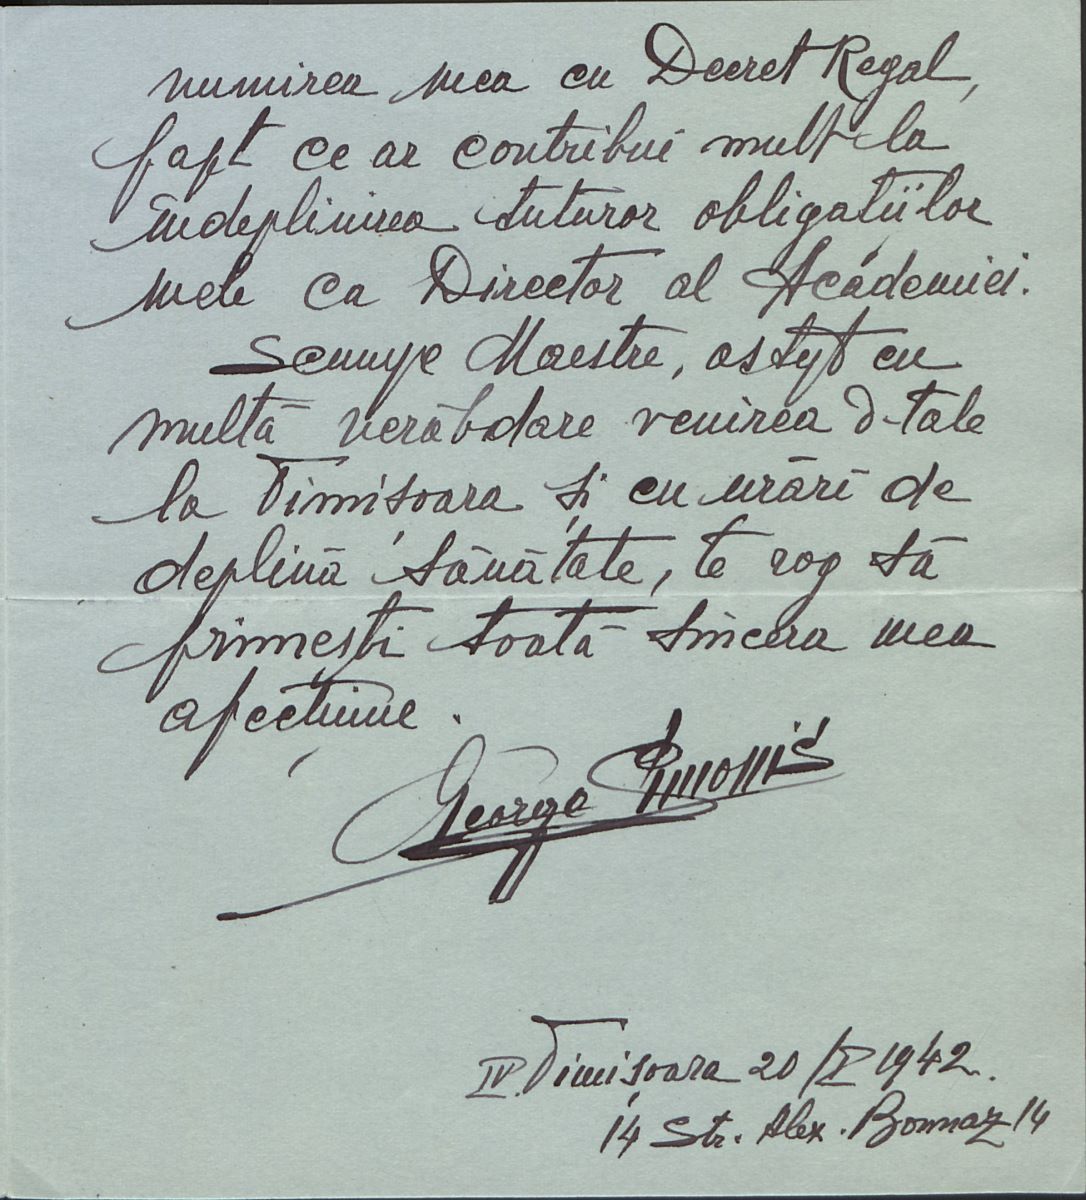 numirea mea cu Decret Regal,
fapt ce ar contribui mult la
îndeplinirea tuturor obligațiilor
mele ca Director al Academiei.
Scumpe Maestre, aștept cu
multă nerăbdare venirea d-tale
la Timișoara și cu urări de
deplină sănătate, te rog să
primești toată sincera mea
afecțiune.
George Simonis
IV. Timișoara 20/X 1942.
14 Str. Alex. Bonnaz 14